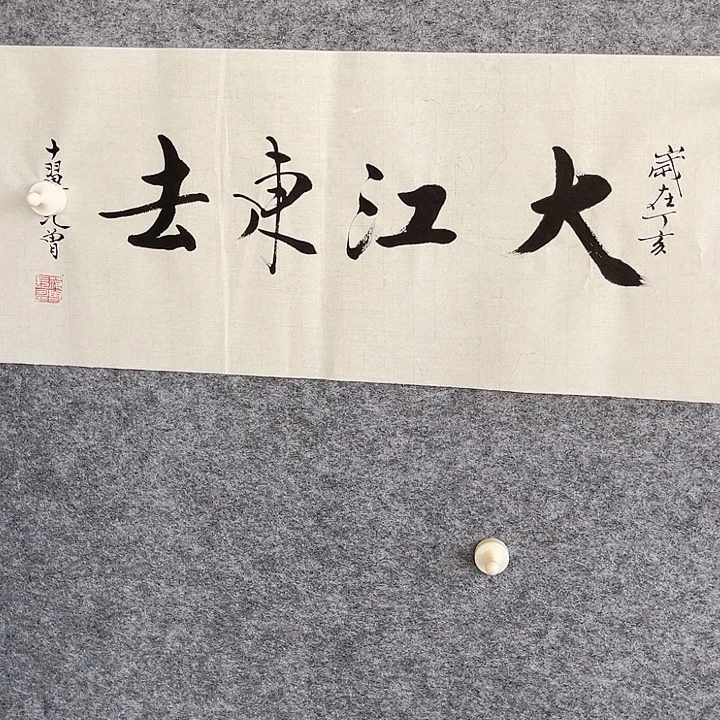 歲在丁亥
大江東去
十翼范曾